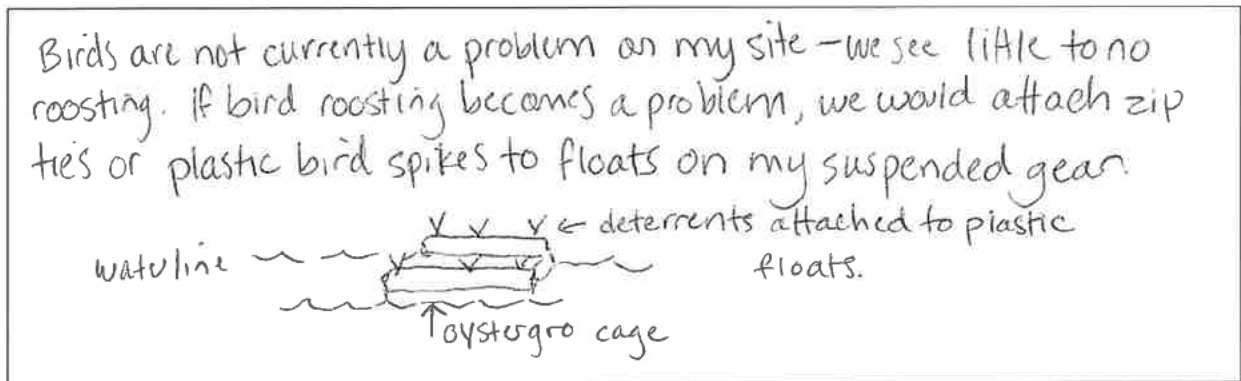 Birds are not currently a problem on my site - we see little to no
roosting. If bird roosting becomes a problem, we would attach zip
ties or plastic bird spikes to floats on my suspended gear.
← deterrents attached to plastic
floats.
waterline
↑ oystergro cage